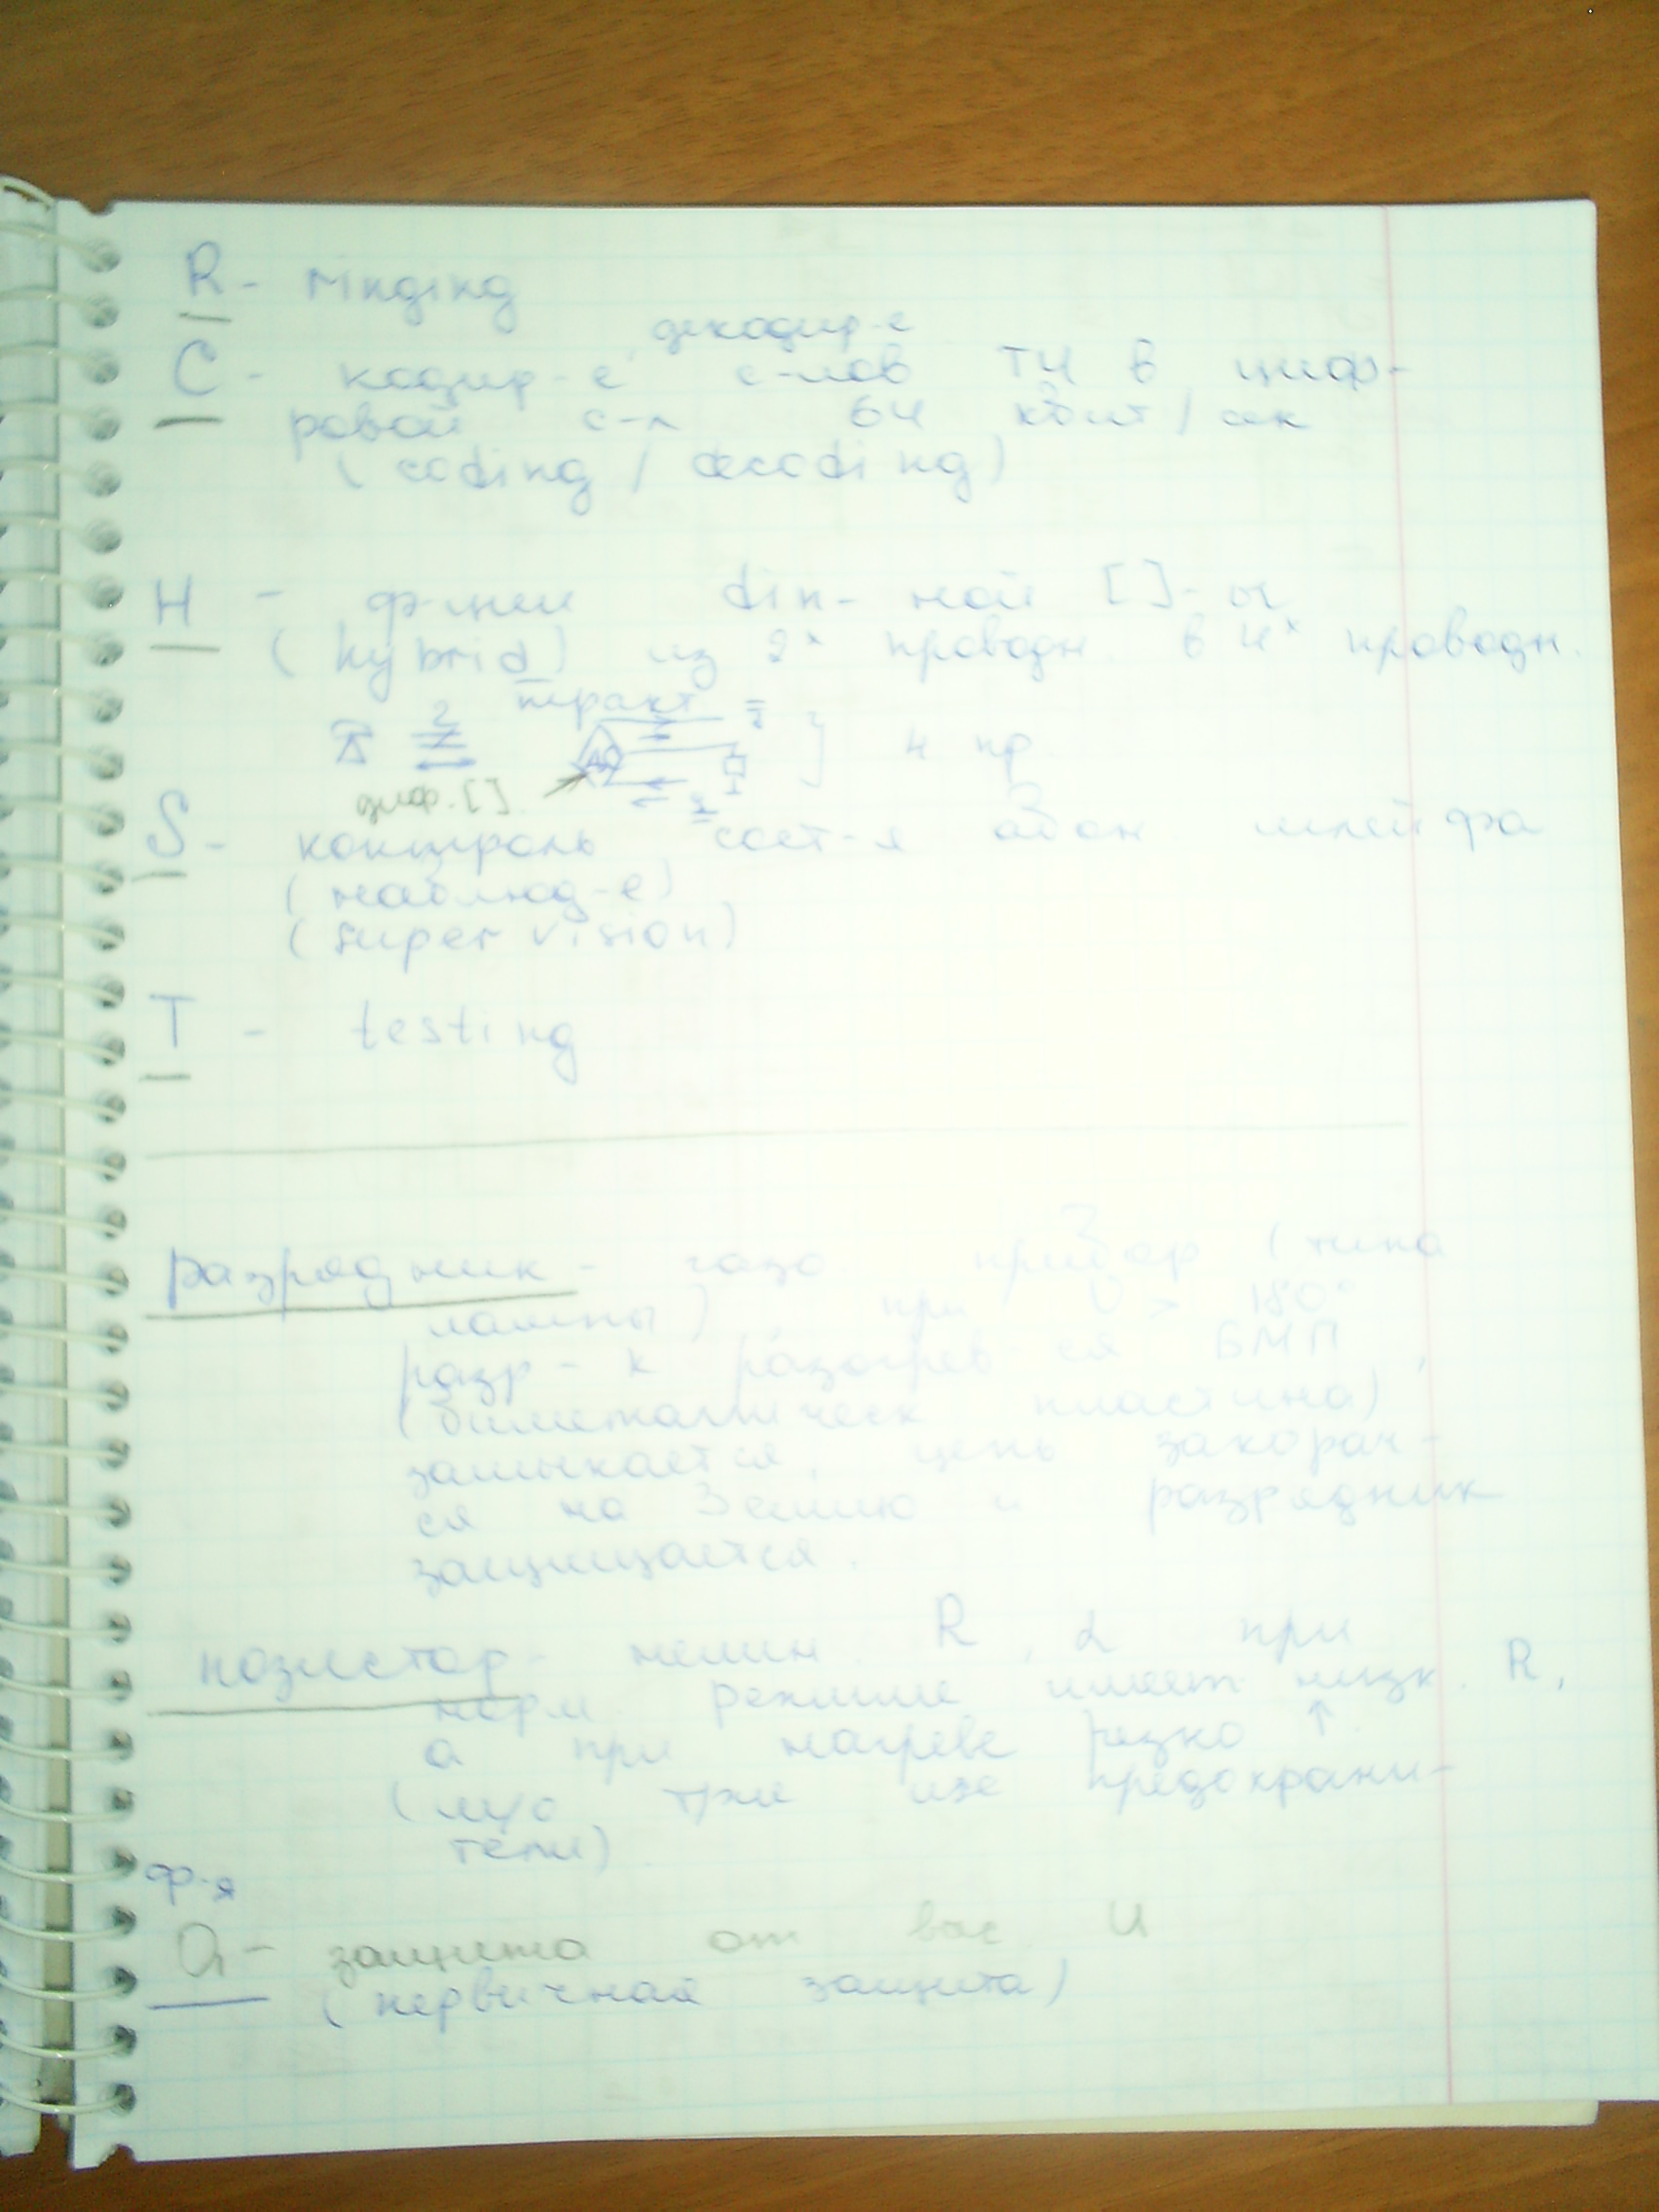 R - ringing
декодир-е
C - кодир-е, с-лов ТЧ в циф-
ровой с-л 64 кбит/сек
(coding / decoding)
H - ф-ции din-ной []-ы
(hybrid) из 2х проводн. в 4х проводн.
тракт
2
4 пр.
диф. []
2
S - контроль сост-я абон шлейфа
(наблюд-е)
(super vision)
T - testing
разрядник - газо прибор (типа
лампы), при U > 180°
разр-к разогрев-ся БМП,
(биметаллическ пластина)
замыкается, цепь закорач-
ся на Землю и разрядник
защищается.
позистор - нелин. R, при
норм. режиме имеет низк. R,
а при нагреве резко ↑
предохрани-
тели)
ф-я
защита от выс U
(первичная защита)